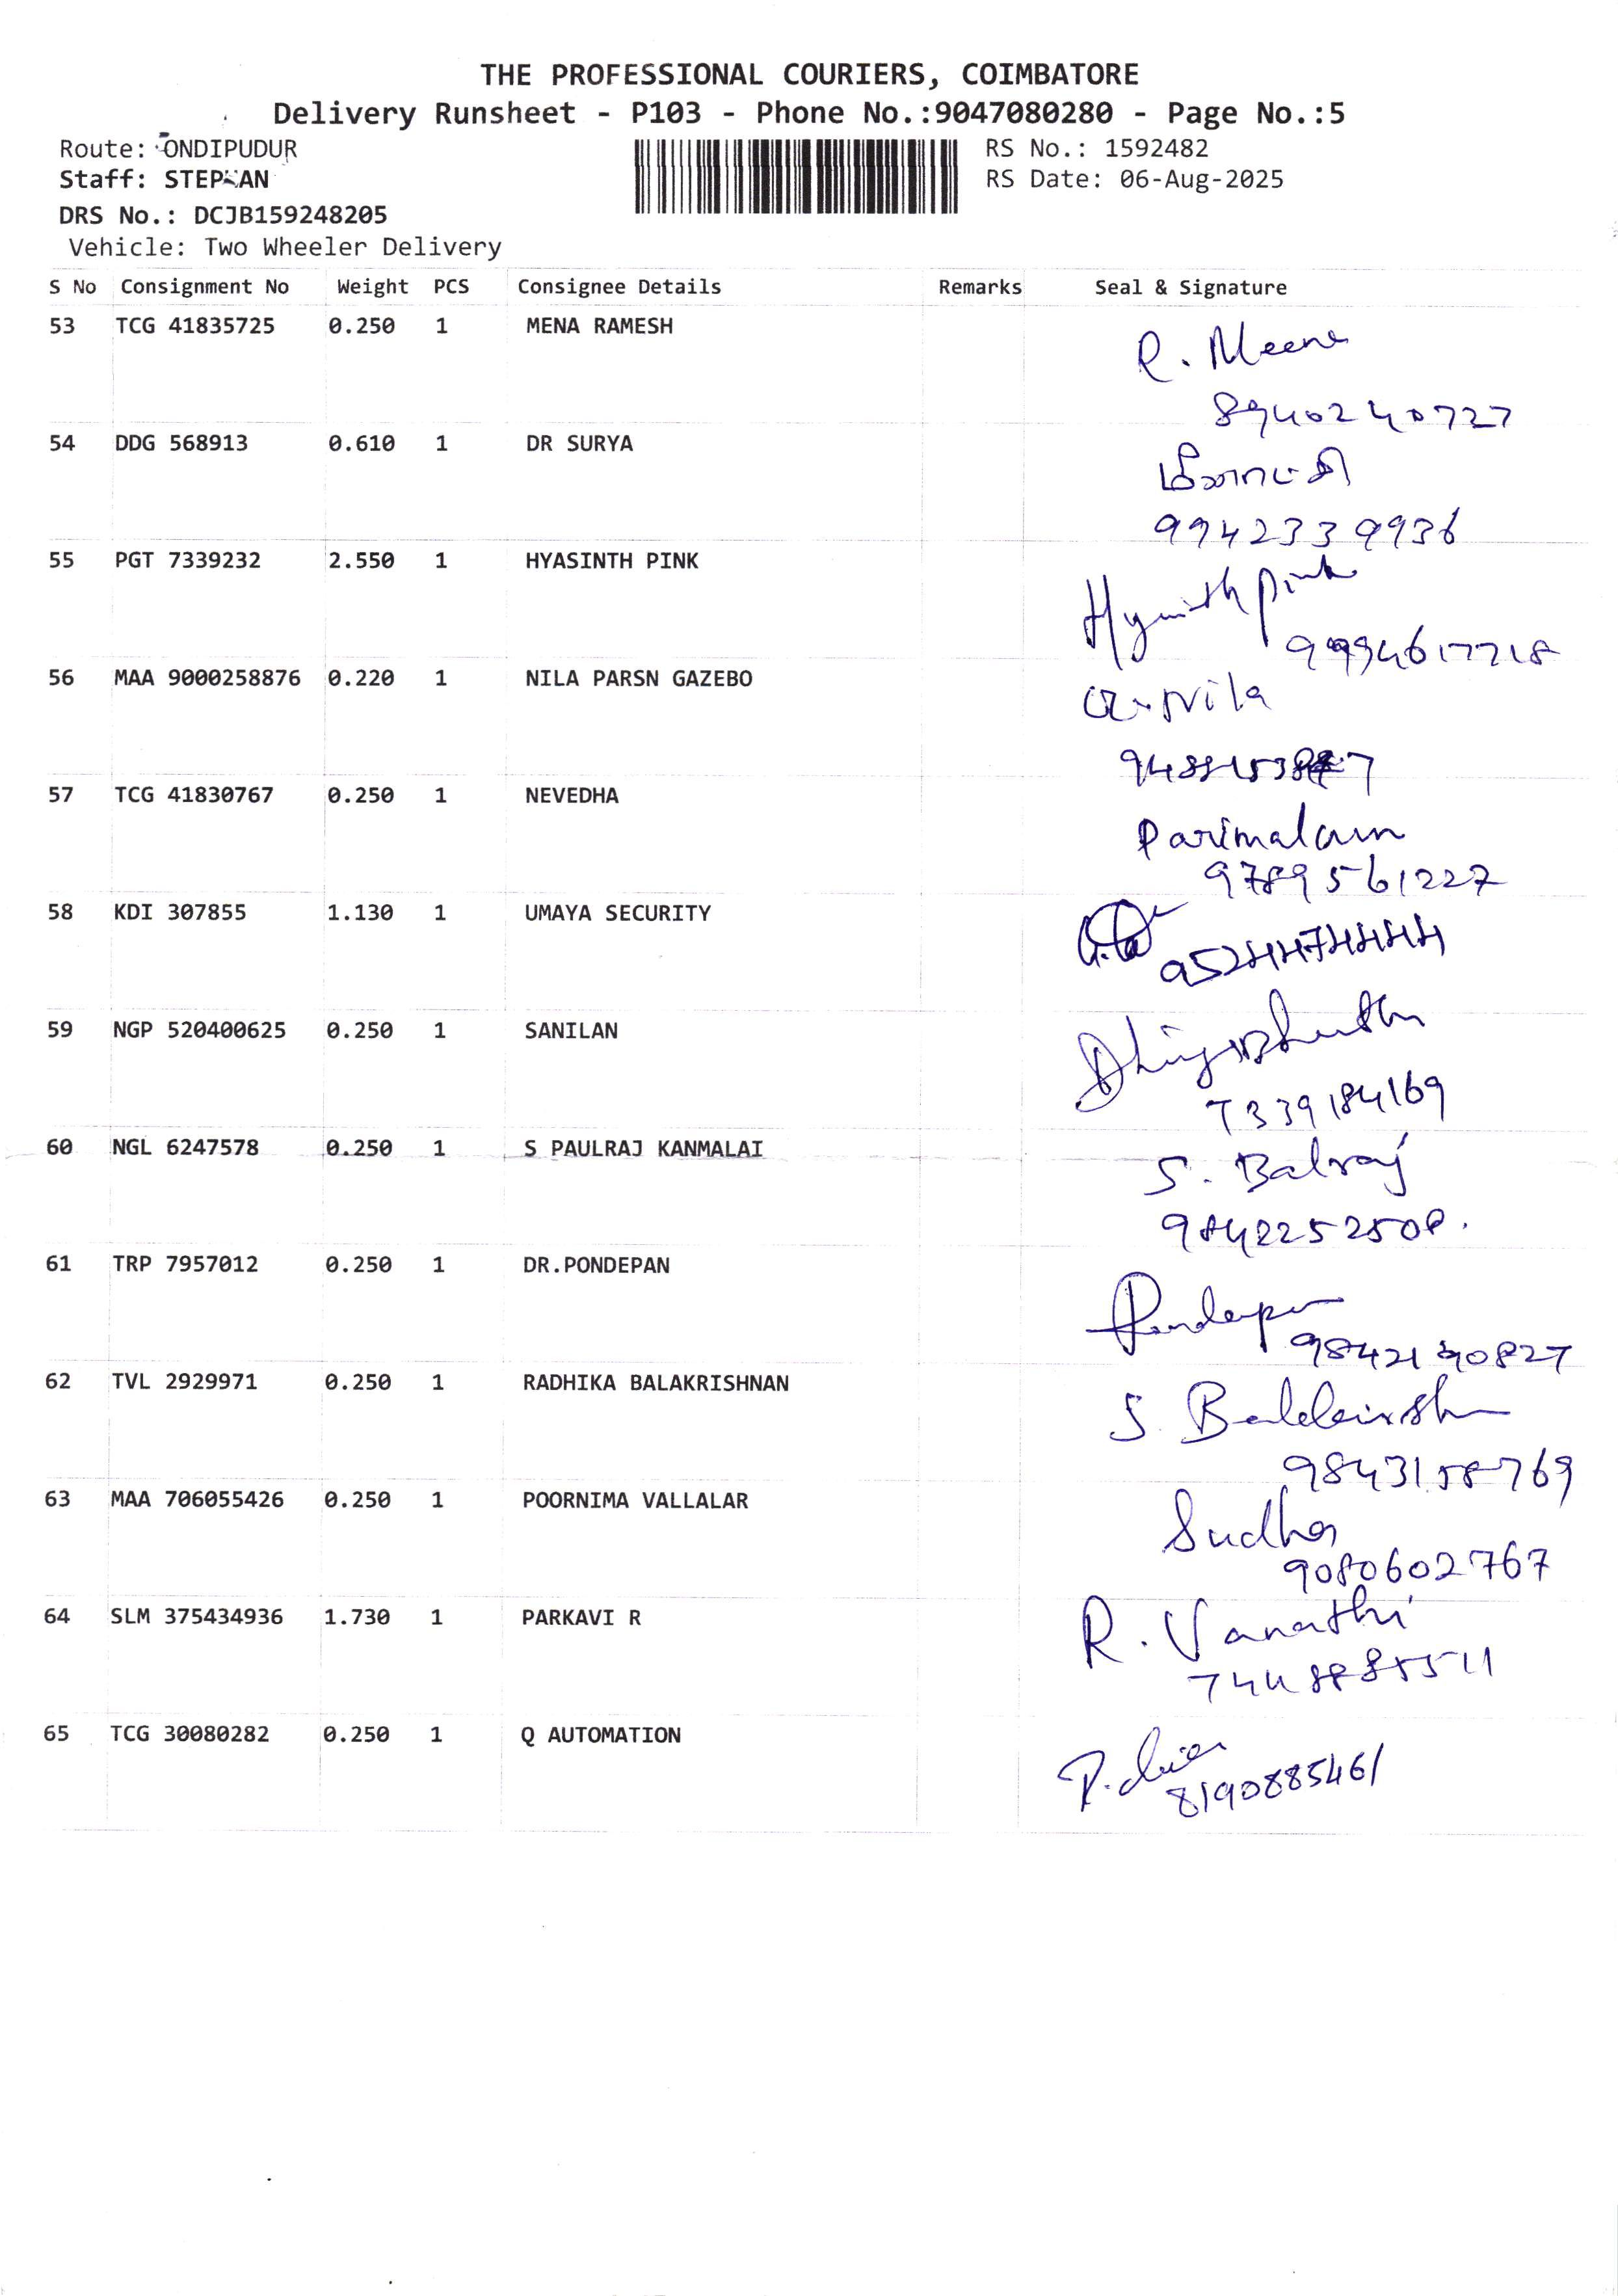 THE PROFESSIONAL COURIERS, COIMBATORE
Delivery Runsheet - P103 - Phone No.:9047080280 - Page No.:5
Route: ONDIPUDUR
RS No.: 1592482
Staff: STEPHAN
RS Date: 06-Aug-2025
DRS No.: DCJB159248205
Vehicle: Two Wheeler Delivery
S No Consignment No Weight PCS Consignee Details Remarks Seal & Signature
53 TCG 41835725 0.250 1 MENA RAMESH
R. Meena
8940240727
54 DDG 568913 0.610 1 DR SURYA
9942339936
55 PGT 7339232 2.550 1 HYASINTH PINK
Hyasinth pink
56 MAA 9000258876 0.220 1 NILA PARSN GAZEBO
Nila
57 TCG 41830767 0.250 1 NEVEDHA
Parimalam
9789561227
58 KDI 307855 1.130 1 UMAYA SECURITY
9524474444
59 NGP 520400625 0.250 1 SANILAN
7339184169
60 NGL 6247578 0.250 1 S PAULRAJ KANMALAI
S. Balraj
9842252508.
61 TRP 7957012 0.250 1 DR.PONDEPAN
Pondepan
62 TVL 2929971 0.250 1 RADHIKA BALAKRISHNAN
9843158769
63 MAA 706055426 0.250 1 POORNIMA VALLALAR
Sudha
9080602767
64 SLM 375434936 1.730 1 PARKAVI R
R. Vanathi
65 TCG 30080282 0.250 1 Q AUTOMATION
8190885461